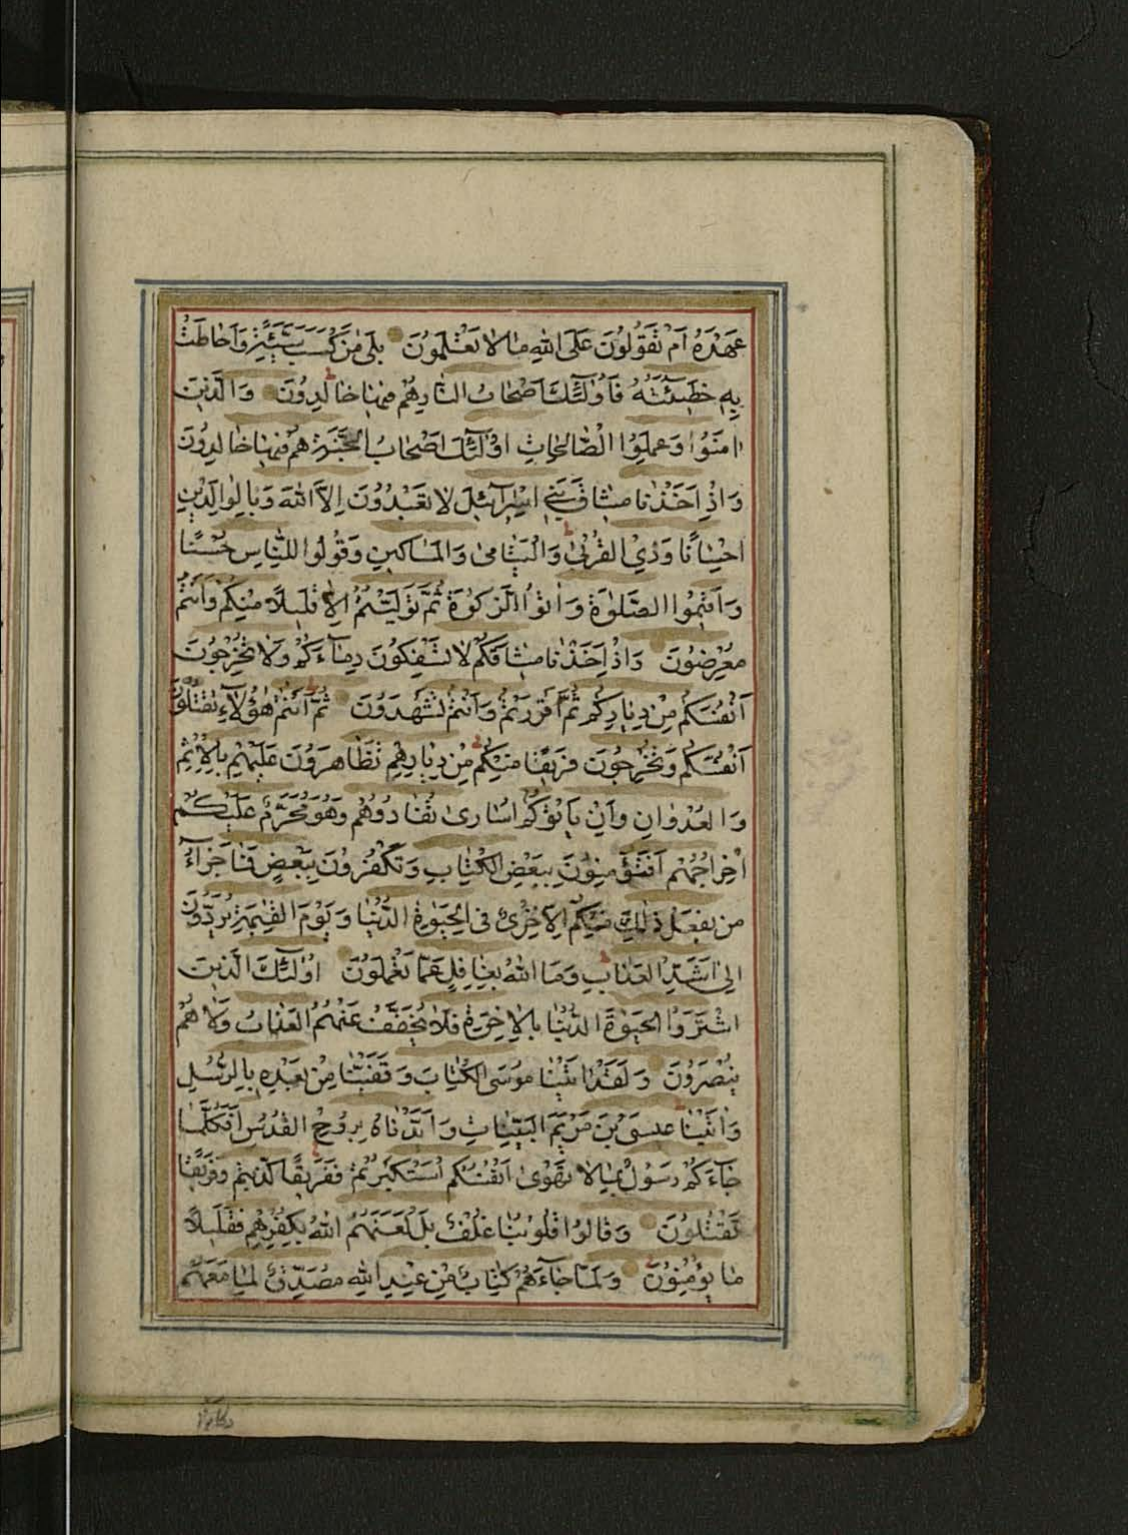 عَهْدَهُ اَمْ تَقُولُونَ عَلَى اللهِ مٰا لاٰ تَعْلَمُونَ بَلىٰ مَنْ كَسَبَ سَيِّئَةً وَاَحٰاطَتْ
بِهِ خَطٖيٓئَتُهُ فَاُولٰٓئِكَ اَصْحٰابُ النّٰارِ هُمْ فٖيهٰا خٰالِدُونَ وَالَّذٖينَ
اٰمَنُوا وَعَمِلُوا الصّٰالِحٰاتِ اُولٰٓئِكَ اَصْحٰابُ الْجَنَّةِ هُمْ فٖيهٰا خٰالِدُونَ
وَاِذْ اَخَذْنٰا مٖيثٰاقَ بَنٖي اِسْرٰٓائٖلَ لاٰ تَعْبُدُونَ اِلاَّ اللهَ وَبِالْوٰالِدَيْنِ
اِحْسٰانًا وَذِي الْقُرْبىٰ وَالْيَتٰامىٰ وَالْمَسٰاكٖينِ وَقُولُوا لِلنّٰاسِ حُسْنًا
وَاَقٖيمُوا الصَّلٰوةَ وَاٰتُوا الزَّكٰوةَ ثُمَّ تَوَلَّيْتُمْ اِلاّٰ قَلٖيلاً مِنْكُمْ وَاَنْتُمْ
مُعْرِضُونَ وَاِذْ اَخَذْنٰا مٖيثٰاقَكُمْ لاٰ تَسْفِكُونَ دِمٰآءَكُمْ وَلاٰ تُخْرِجُونَ
اَنْفُسَكُمْ مِنْ دِيٰارِكُمْ ثُمَّ اَقْرَرْتُمْ وَاَنْتُمْ تَشْهَدُونَ ثُمَّ اَنْتُمْ هٰؤُلآٰءِ تَقْتُلُونَ
اَنْفُسَكُمْ وَتُخْرِجُونَ فَرٖيقًا مِنْكُمْ مِنْ دِيٰارِهِمْ تَظّٰاهَرُونَ عَلَيْهِمْ بِالْاِثْمِ
وَالْعُدْوٰانِ وَاِنْ يَأْتُوكُمْ اُسٰارىٰ تُفٰادُوهُمْ وَهُوَ مُحَرَّمٌ عَلَيْكُمْ
اِخْرٰاجُهُمْ اَفَتُؤْمِنُونَ بِبَعْضِ الْكِتٰابِ وَتَكْفُرُونَ بِبَعْضٍ فَمٰا جَزٰٓاءُ
مَنْ يَفْعَلُ ذٰلِكَ مِنْكُمْ اِلاّٰ خِزْيٌ فِي الْحَيٰوةِ الدُّنْيٰا وَيَوْمَ الْقِيٰمَةِ يُرَدُّونَ
اِلىٰ اَشَدِّ الْعَذٰابِ وَمَا اللهُ بِغٰافِلٍ عَمّٰا تَعْمَلُونَ اُولٰٓئِكَ الَّذٖينَ
اشْتَرَوُا الْحَيٰوةَ الدُّنْيٰا بِالْاٰخِرَةِ فَلاٰ يُخَفَّفُ عَنْهُمُ الْعَذٰابُ وَلاٰ هُمْ
يُنْصَرُونَ وَلَقَدْ اٰتَيْنٰا مُوسَى الْكِتٰابَ وَقَفَّيْنٰا مِنْ بَعْدِهِ بِالرُّسُلِ
وَاٰتَيْنٰا عٖيسَى بْنَ مَرْيَمَ الْبَيِّنٰاتِ وَاَيَّدْنٰاهُ بِرُوحِ الْقُدُسِ اَفَكُلَّمٰا
جٰٓاءَكُمْ رَسُولٌ بِمٰا لاٰ تَهْوىٰ اَنْفُسُكُمُ اسْتَكْبَرْتُمْ فَفَرٖيقًا كَذَّبْتُمْ وَفَرٖيقًا
تَقْتُلُونَ وَقٰالُوا قُلُوبُنٰا غُلْفٌ بَلْ لَعَنَهُمُ اللهُ بِكُفْرِهِمْ فَقَلٖيلاً
مٰا يُؤْمِنُونَ وَلَمّٰا جٰٓاءَهُمْ كِتٰابٌ مِنْ عِنْدِ اللهِ مُصَدِّقٌ لِمٰا مَعَهُمْ
وكانوا